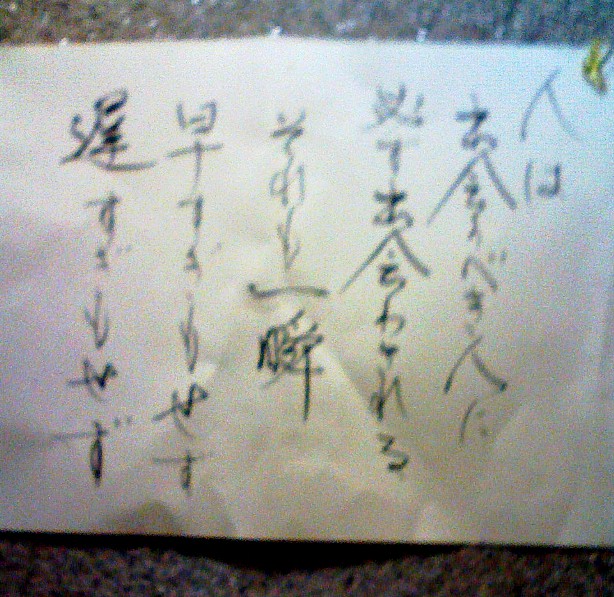 人は
出会うべき人に
必ず出会わされる
それも一瞬
早すぎもせず
遅すぎもせず